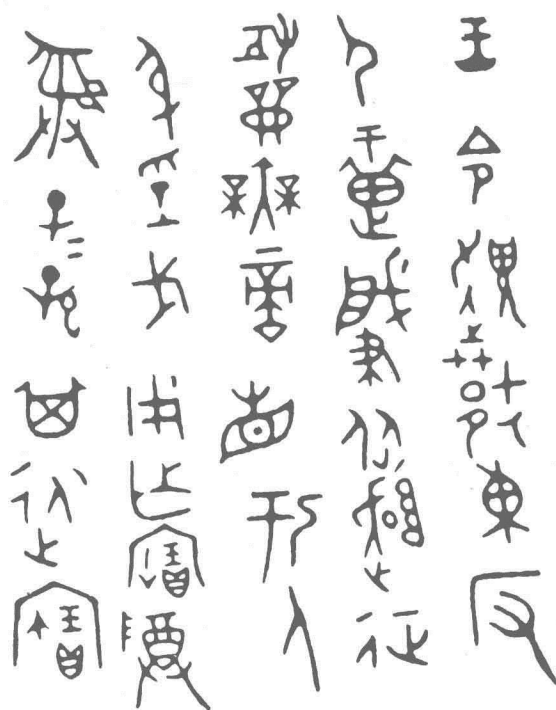 王令趞捷東反
尸疐肈從趞征
攻龠無啻省于人
身孚戈用乍寶尊
彝子＝孫其永寶